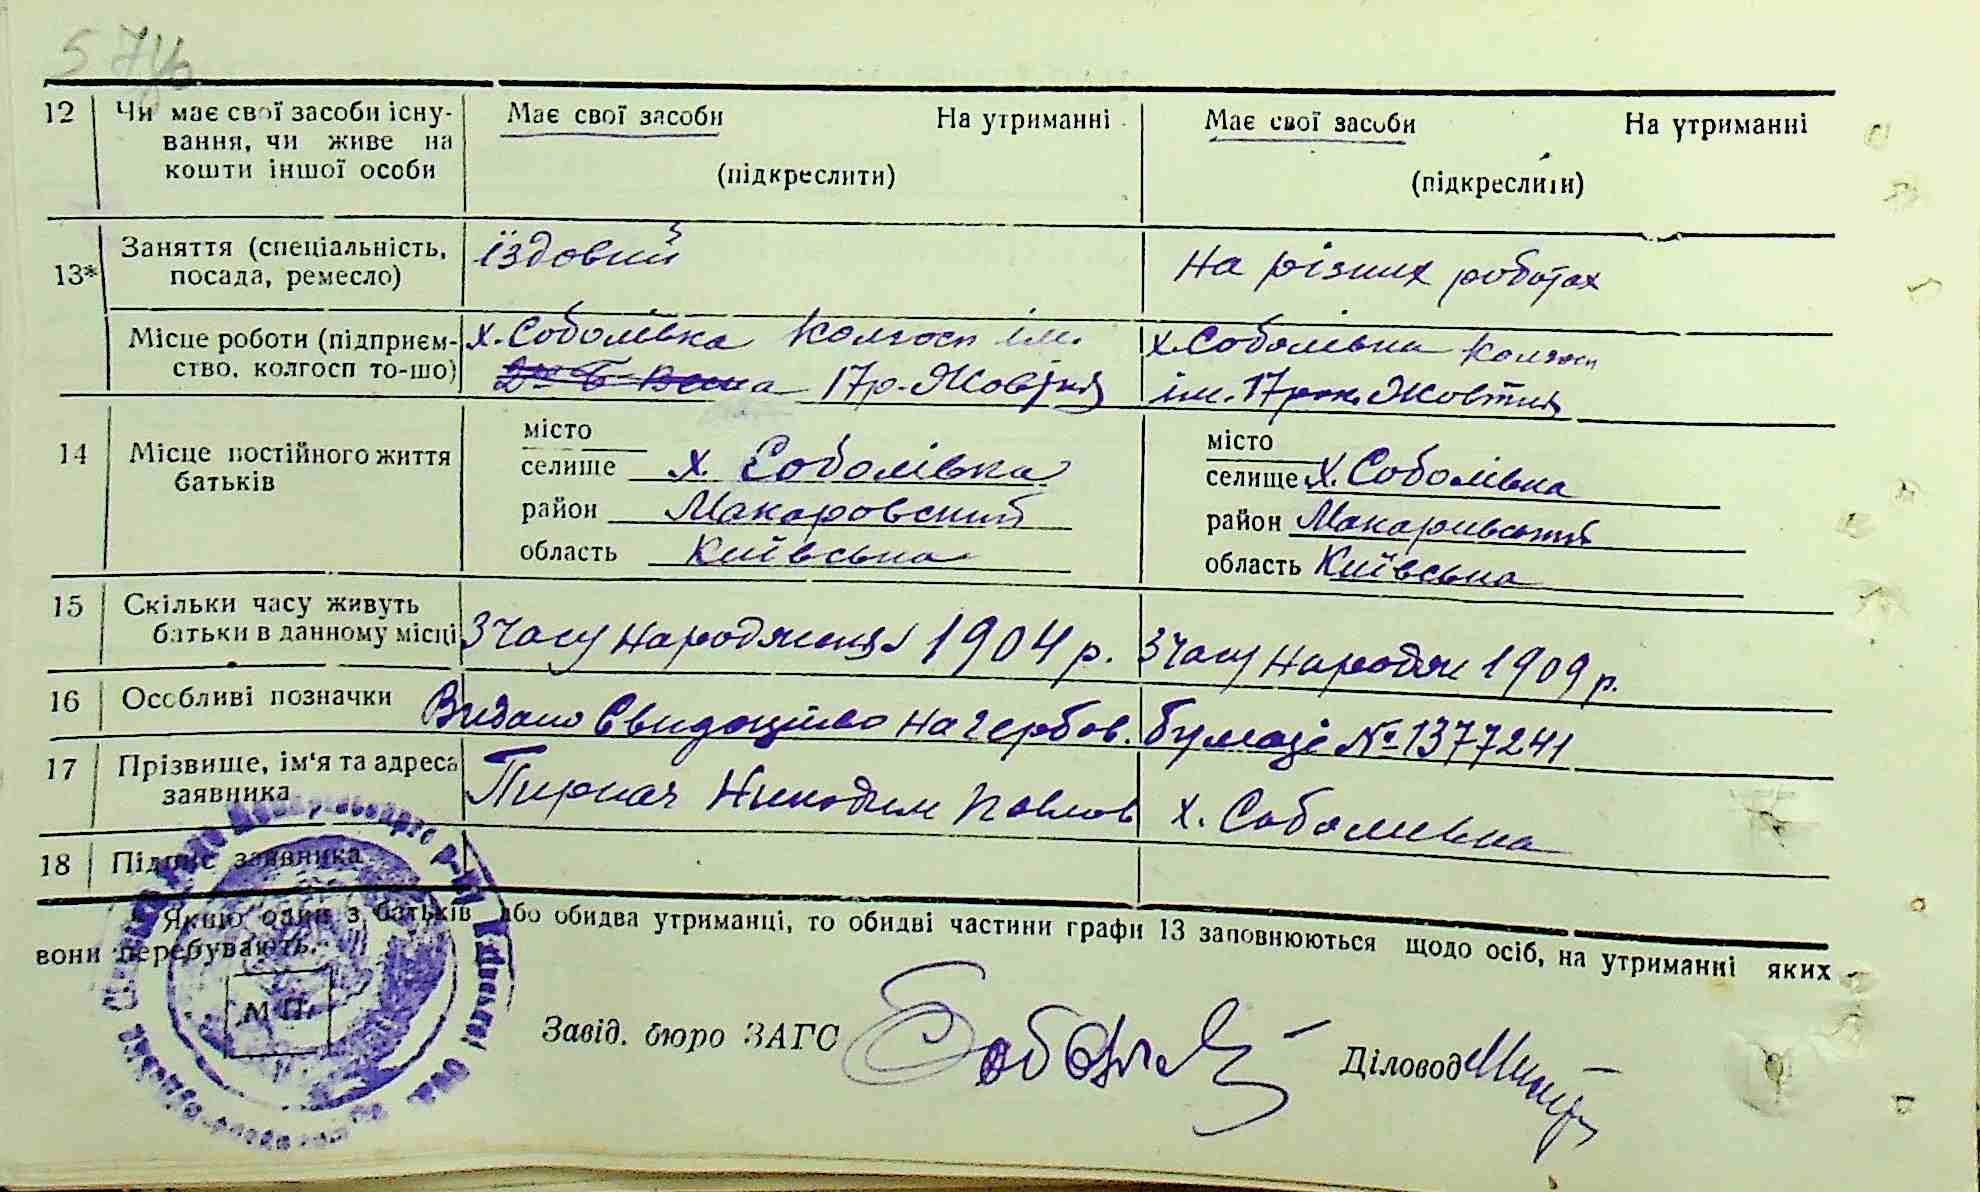 12 Чи має свої засоби існу- Має свої засоби На утриманні Має свої засоби На утриманні
вання, чи живе на
кошти іншої особи (підкреслити) (підкреслити)
13* Заняття (спеціальність, їздовий на різних роботах
посада, ремесло)
Місце роботи (підприєм- х. Соболівка Колгосп ім. х. Соболівка Колгосп
ство, колгосп то-що) 17 р. Жовтня ім. 17 рок. Жовтня
14 Місце постійного життя місто місто
батьків селище х. Соболівка селище х. Соболівка
район Макаровский район Макаривский
область Київська область Київська
15 Скільки часу живуть
батьки в данному місці З часу народження 1904 р. З часу народж 1909 р.
16 Особливі позначки Видано Свидоцтво на гербов. бумазі № 1377241
17 Прізвище, ім'я та адреса Пирнач Никодим Павлов х. Соболивка
заявника
18 Підпис заявника
* Якщо один з батьків або обидва утриманці, то обидві частини графи 13 заповнюються щодо осіб, на утриманні яких
вони перебувають.
М П.
Завід. бюро ЗАГС Діловод